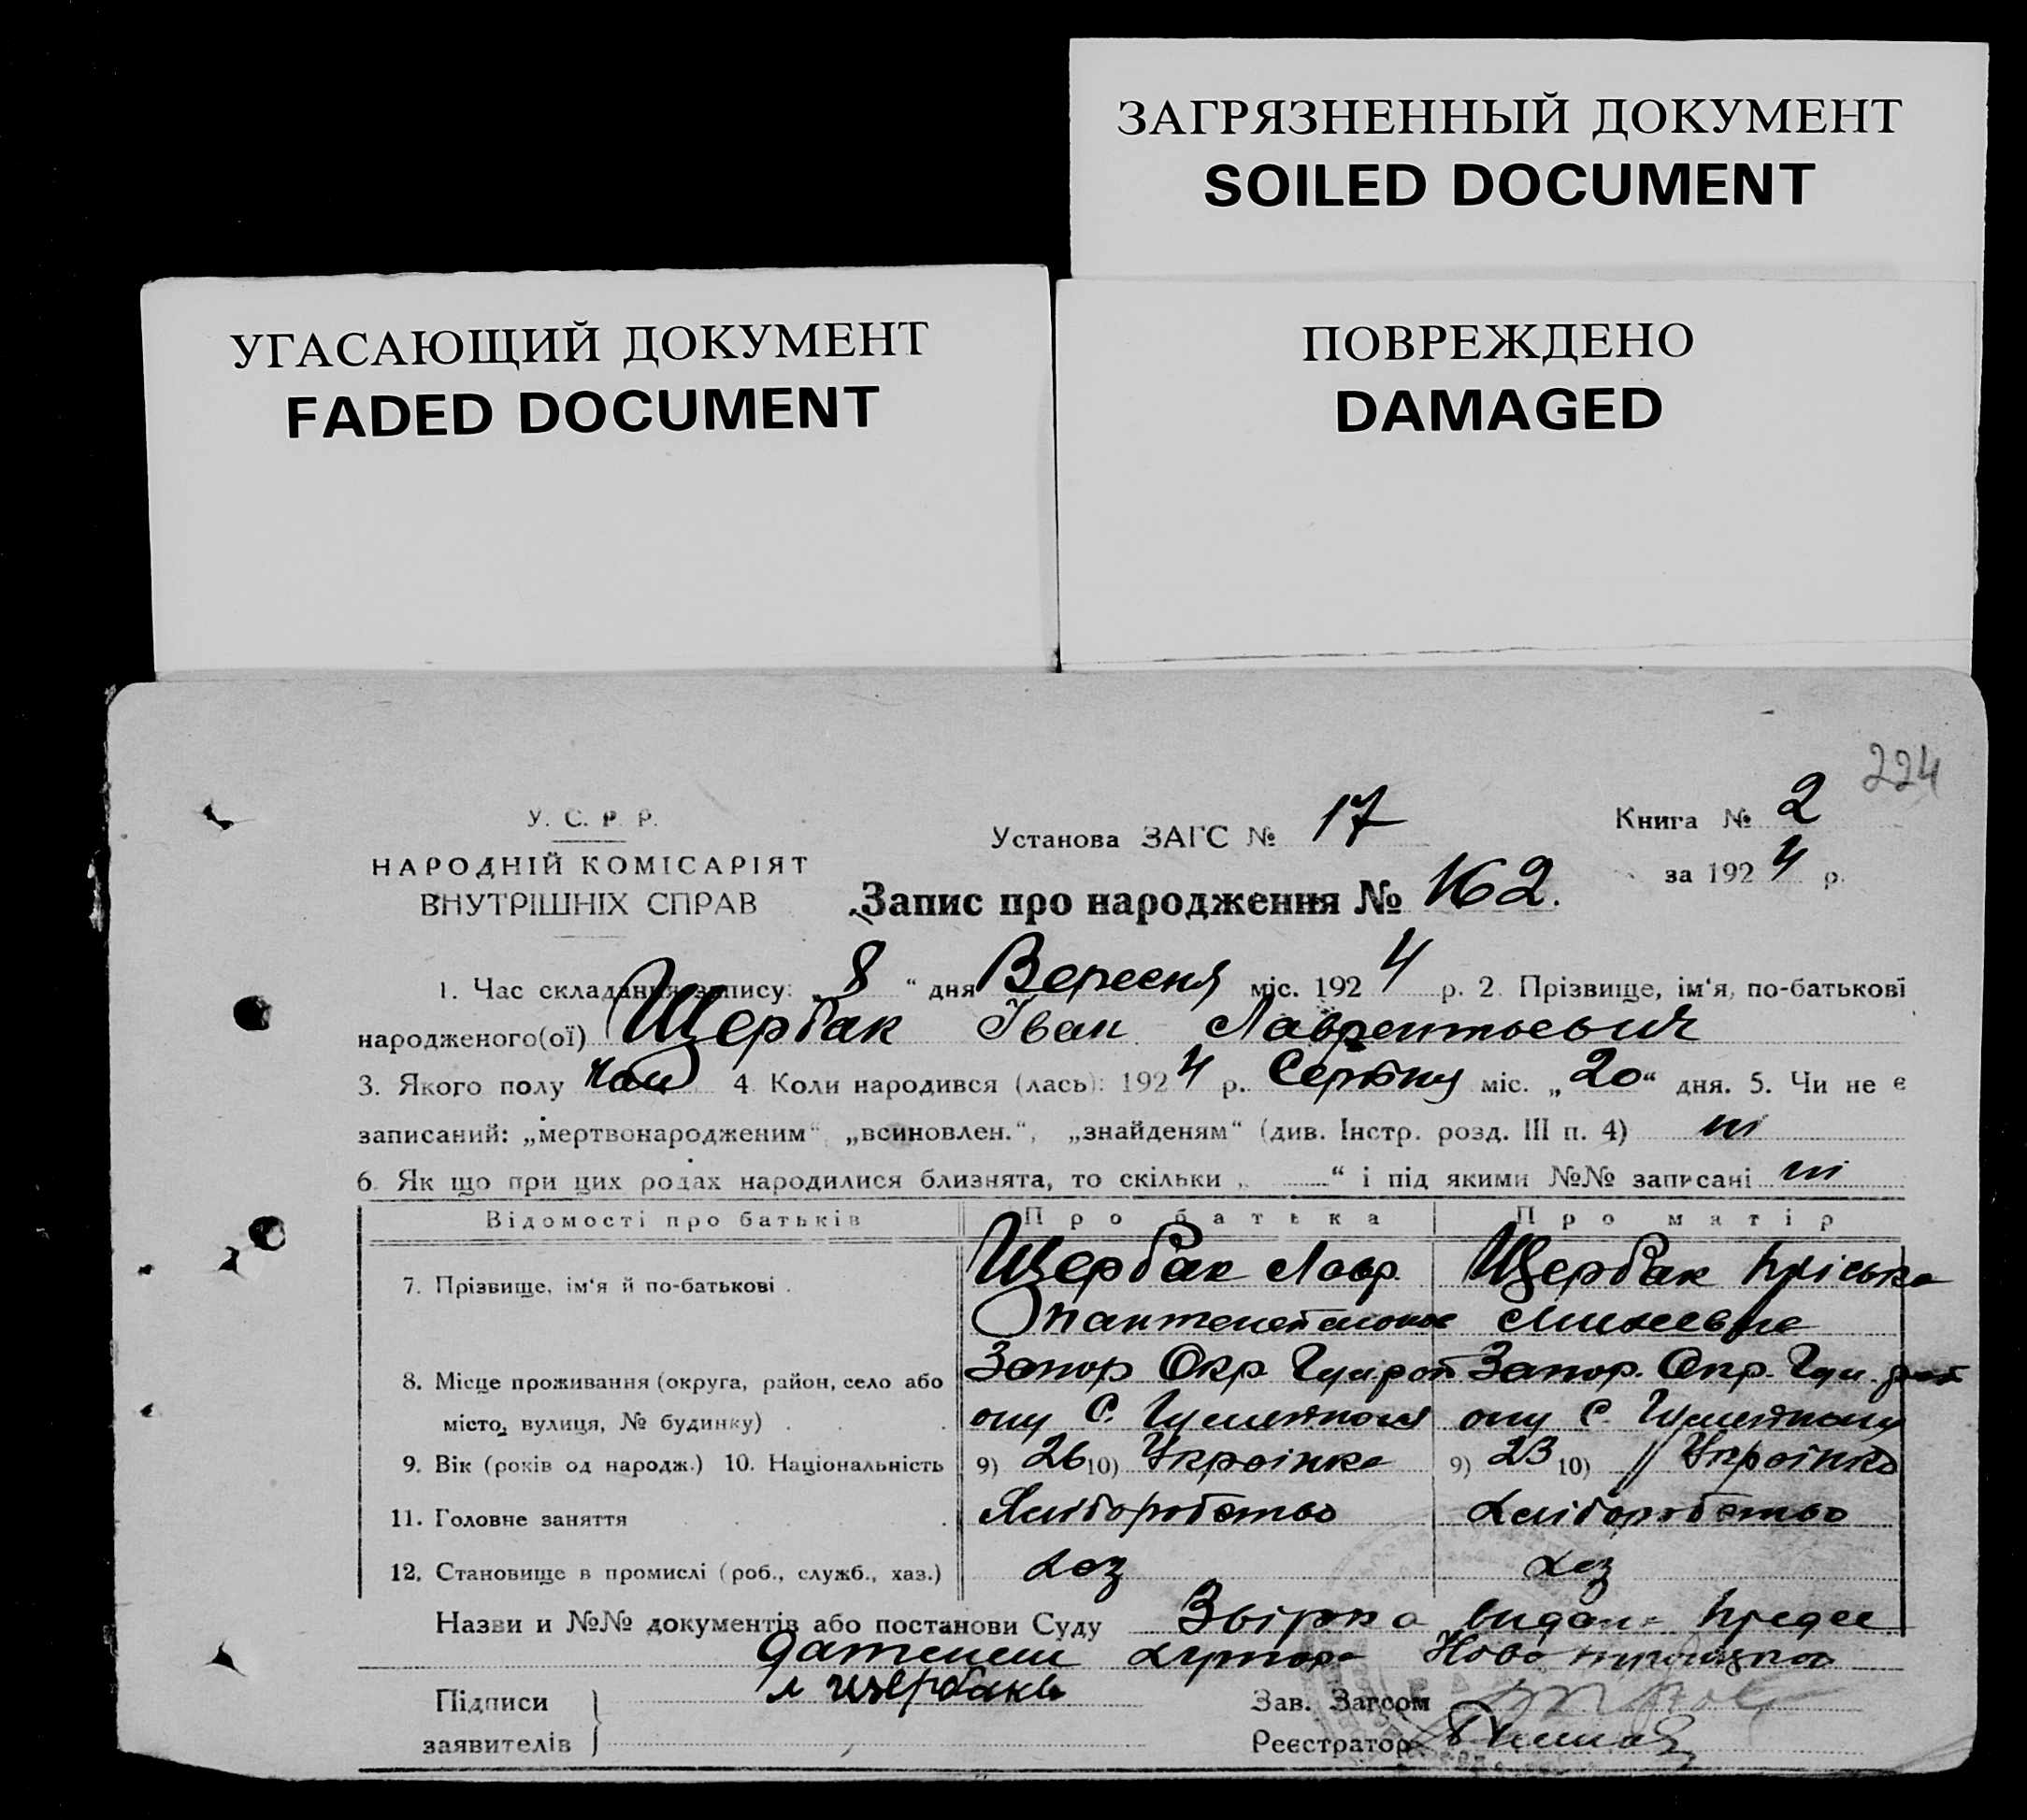 ЗАГРЯЗНЕННЫЙ ДОКУМЕНТ
SOILED DOCUMENT
УГАСАЮЩИЙ ДОКУМЕНТ
FADED DOCUMENT
ПОВРЕЖДЕНО
DAMAGED
224
У. С. Р. Р.
НАРОДНІЙ КОМІСАРІЯТ
ВНУТРІШНІХ СПРАВ
Установа ЗАГС № 17
Книга № 2
за 1924 р.
Запис про народження № 162.
1. Час складання запису: „8“ дня Вересня міс. 1924 р. 2. Прізвище, ім‘я, по-батькові
народженого(ої) Щербак Іван Лаврентьевич
3. Якого полу чол 4. Коли народився (лась): 1924 р. Серпня міс. „20“ дня. 5. Чи не є
записаний: „мертвонародженим“, „всиновлен.“, „знайденям“ (див. Інстр. розд. III п. 4) ні
6. Як що при цих родах народилися близнята, то скільки „ “ і під якими №№ записані ні
Відомості про батьків Про батька Про матір
7. Прізвище, ім‘я й по-батькові . Щербак Лавр. Щербак Пріська
8. Місце проживання (округа, район, село або Запор Окр. Запор. Окр.
місто, вулиця, № будинку) . . . С. С.
9. Вік (років од народж.) 10. Національність 9) 26 10) Україінка 9) 23 10) Україінка
11. Головне заняття . . . . Хліборобство Хліборобство
12. Становище в промислі (роб., служб., хаз.) хоз хоз
Назви и №№ документів або постанови Суду Звірка видана
хутора
Підписи
заявителів
Щербакъ
Зав. Загсом
Реєстратор